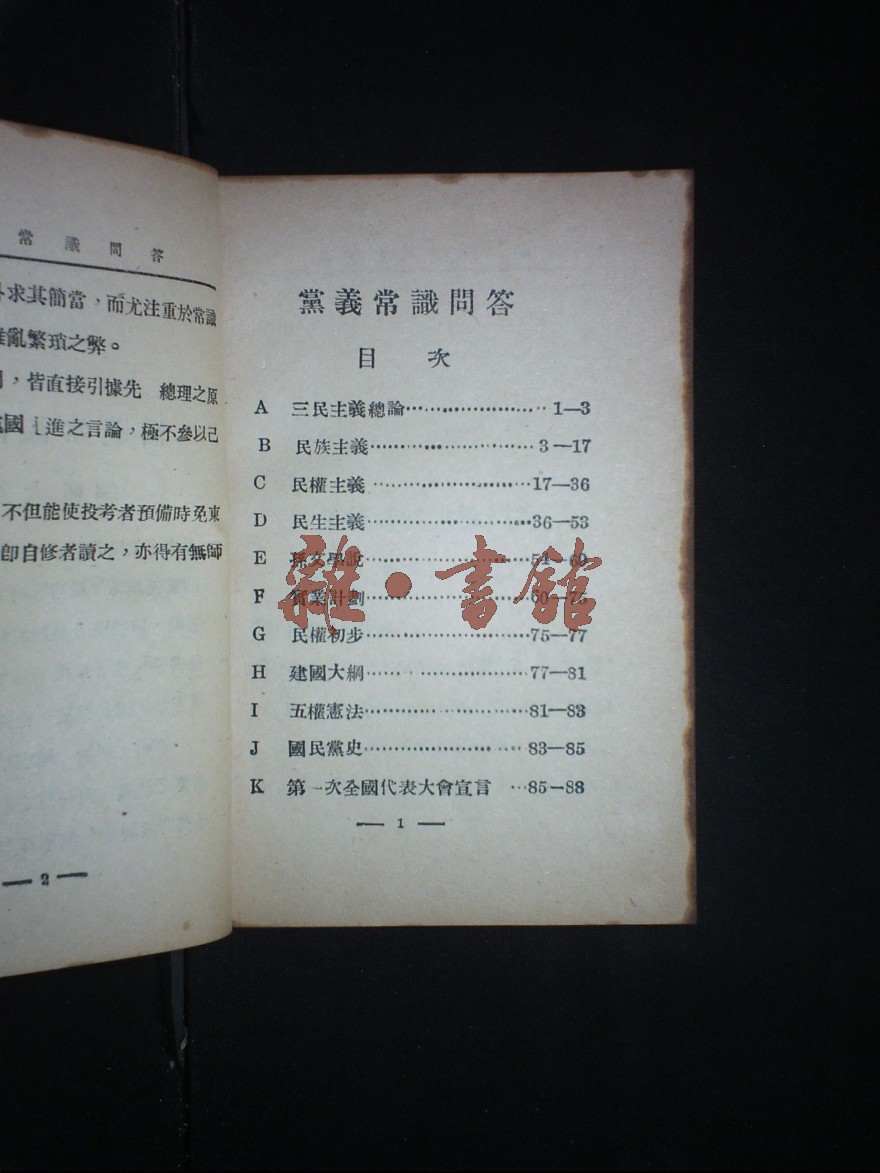 常識問答
求其簡當，而尤注重於常識
亂繁瑣之弊。
，皆直接引據先　總理之原
國 進之言論，極不參以己
不但能使投考者預備時免東
即自修者讀之，亦得有無師
— 2 —
黨義常識問答
目　次
A 三民主義總論……………………1—3
B 民族主義……………………3—17
C 民權主義……………………17—36
D 民生主義……………………36—53
E 孫文學說……………………54—60
F 實業計劃……………………60—75
G 民權初步……………………75—77
H 建國大綱……………………77—81
I 五權憲法……………………81—83
J 國民黨史……………………83—85
K 第一次全國代表大會宣言…85—88
— 1 —
雜·書館